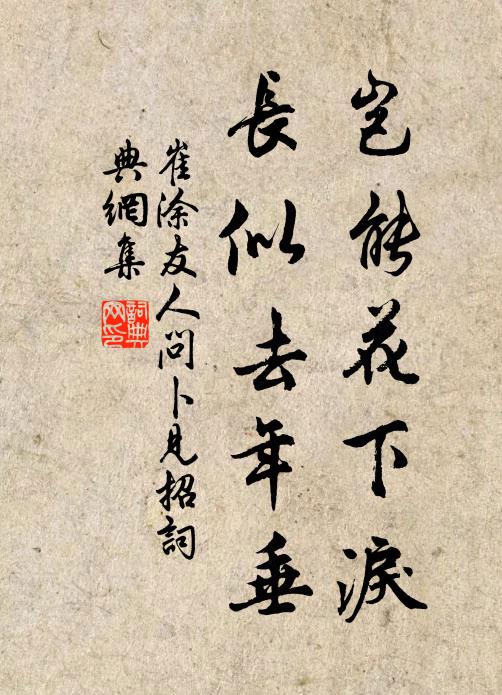 豈能花下淚
長似去年垂
崔涂友人問卜見招詞
典網集
詞典
网印